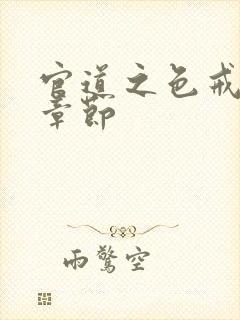 官道之色戒
章節
雨驚空